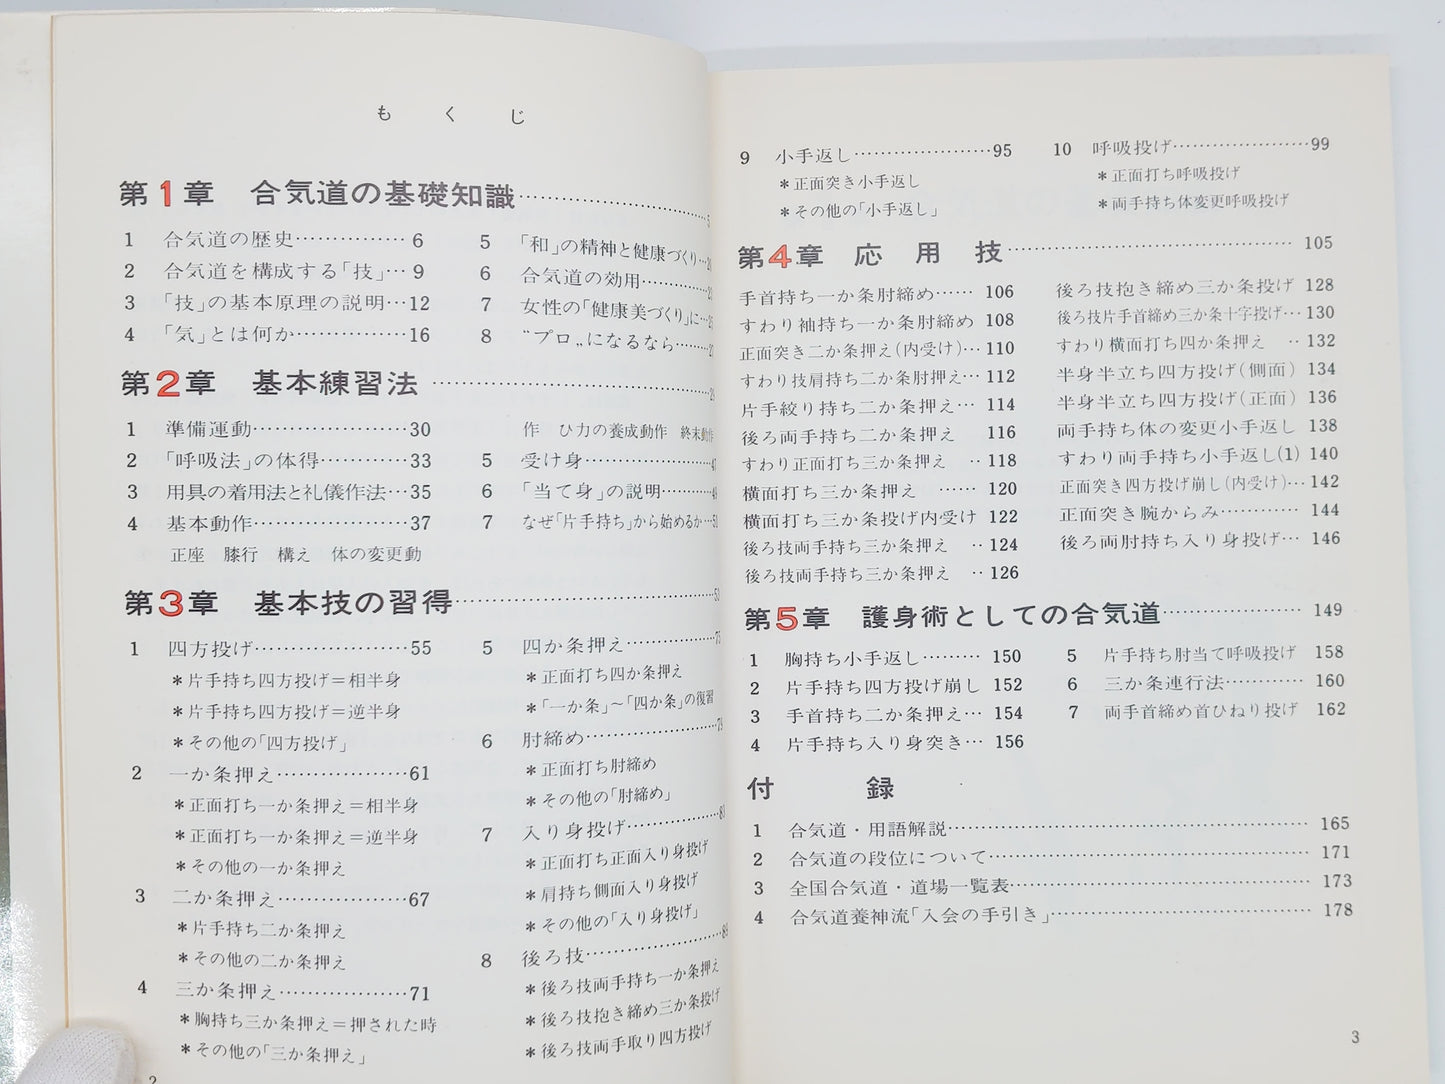 もくじ
第1章 合気道の基礎知識……5
1 合気道の歴史……6
2 合気道を構成する「技」…9
3 「技」の基本原理の説明…12
4 「気」とは何か……16
5 「和」の精神と健康づくり…
6 合気道の効用……
7 女性の「健康美づくり」に…
8 〝プロ〟になるなら……
第2章 基本練習法……
1 準備運動……30
2 「呼吸法」の体得……33
3 用具の着用法と礼儀作法…35
4 基本動作……37
正座 膝行 構え 体の変更動
作 ひ力の養成動作 終末動作
5 受け身……47
6 「当て身」の説明……49
7 なぜ「片手持ち」から始めるか…51
第3章 基本技の習得……53
1 四方投げ……55
＊片手持ち四方投げ＝相半身
＊片手持ち四方投げ＝逆半身
＊その他の「四方投げ」
2 一か条押え……61
＊正面打ち一か条押え＝相半身
＊正面打ち一か条押え＝逆半身
＊その他の一か条押え
3 二か条押え……67
＊片手持ち二か条押え
＊その他の二か条押え
4 三か条押え……71
＊胸持ち三か条押え＝押された時
＊その他の「三か条押え」
5 四か条押え……75
＊正面打ち四か条押え
＊「一か条」～「四か条」の復習
6 肘締め……
＊正面打ち肘締め
＊その他の「肘締め」
7 入り身投げ……
＊正面打ち正面入り身投げ
＊肩持ち側面入り身投げ
＊その他の「入り身投げ」
8 後ろ技……
＊後ろ技両手持ち一か条押え
＊後ろ技抱き締め三か条投げ
＊後ろ技両手取り四方投げ
2
9 小手返し……95
＊正面突き小手返し
＊その他の「小手返し」
10 呼吸投げ……99
＊正面打ち呼吸投げ
＊両手持ち体変更呼吸投げ
第4章 応用技……105
手首持ち一か条肘締め……106
すわり袖持ち一か条肘締め 108
正面突き二か条押え(内受け)…110
すわり技肩持ち二か条肘押え…112
片手絞り持ち二か条押え…114
後ろ両手持ち二か条押え 116
すわり正面打ち三か条押え ‥118
横面打ち三か条押え ……120
横面打ち三か条投げ内受け 122
後ろ技両手持ち三か条押え ‥124
後ろ技両手持ち三か条押え ‥126
後ろ技抱き締め三か条投げ 128
後ろ技片手首締め三か条十字投げ…130
すわり横面打ち四か条押え ‥132
半身半立ち四方投げ(側面) 134
半身半立ち四方投げ(正面) 136
両手持ち体の変更小手返し 138
すわり両手持ち小手返し(1) 140
正面突き四方投げ崩し(内受け)…142
正面突き腕からみ……144
後ろ両肘持ち入り身投げ…146
第5章 護身術としての合気道……149
1 胸持ち小手返し………150
2 片手持ち四方投げ崩し 152
3 手首持ち二か条押え…154
4 片手持ち入り身突き…156
5 片手持ち肘当て呼吸投げ 158
6 三か条連行法……160
7 両手首締め首ひねり投げ 162
付録
1 合気道・用語解説……165
2 合気道の段位について……171
3 全国合気道・道場一覧表……173
4 合気道養神流「入会の手引き」……178
3